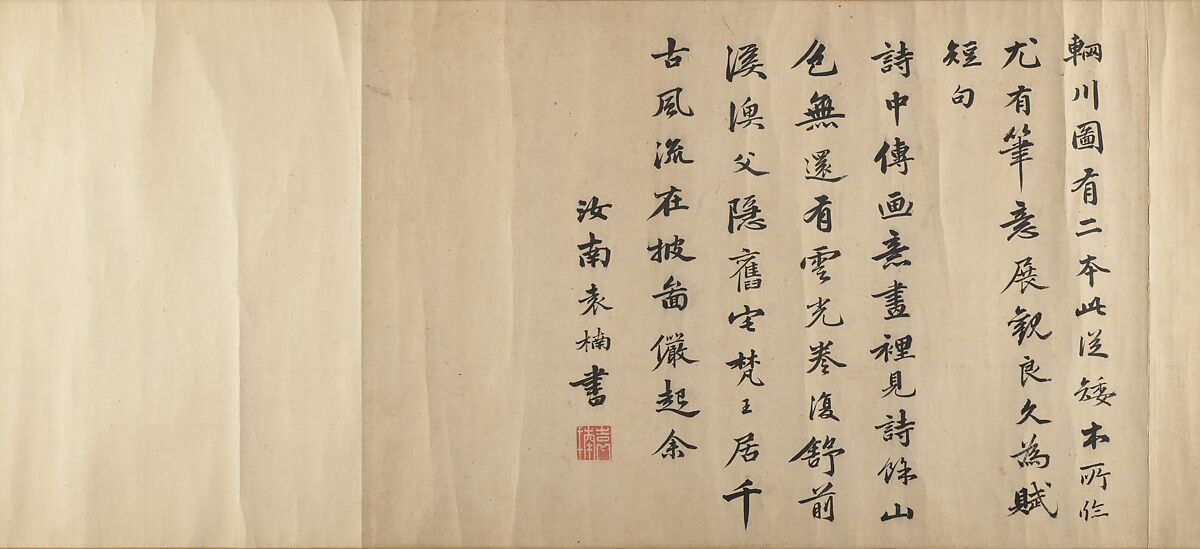 輞川圖有二本此從矮本所臨
尤有筆意展観良久為賦
短句
詩中傳画意畫裡見詩餘山
色無還有雲光卷復舒前
溪漁父隱舊宅梵王居千
古風流在披啚儼起余
汝南袁楠書
袁楠